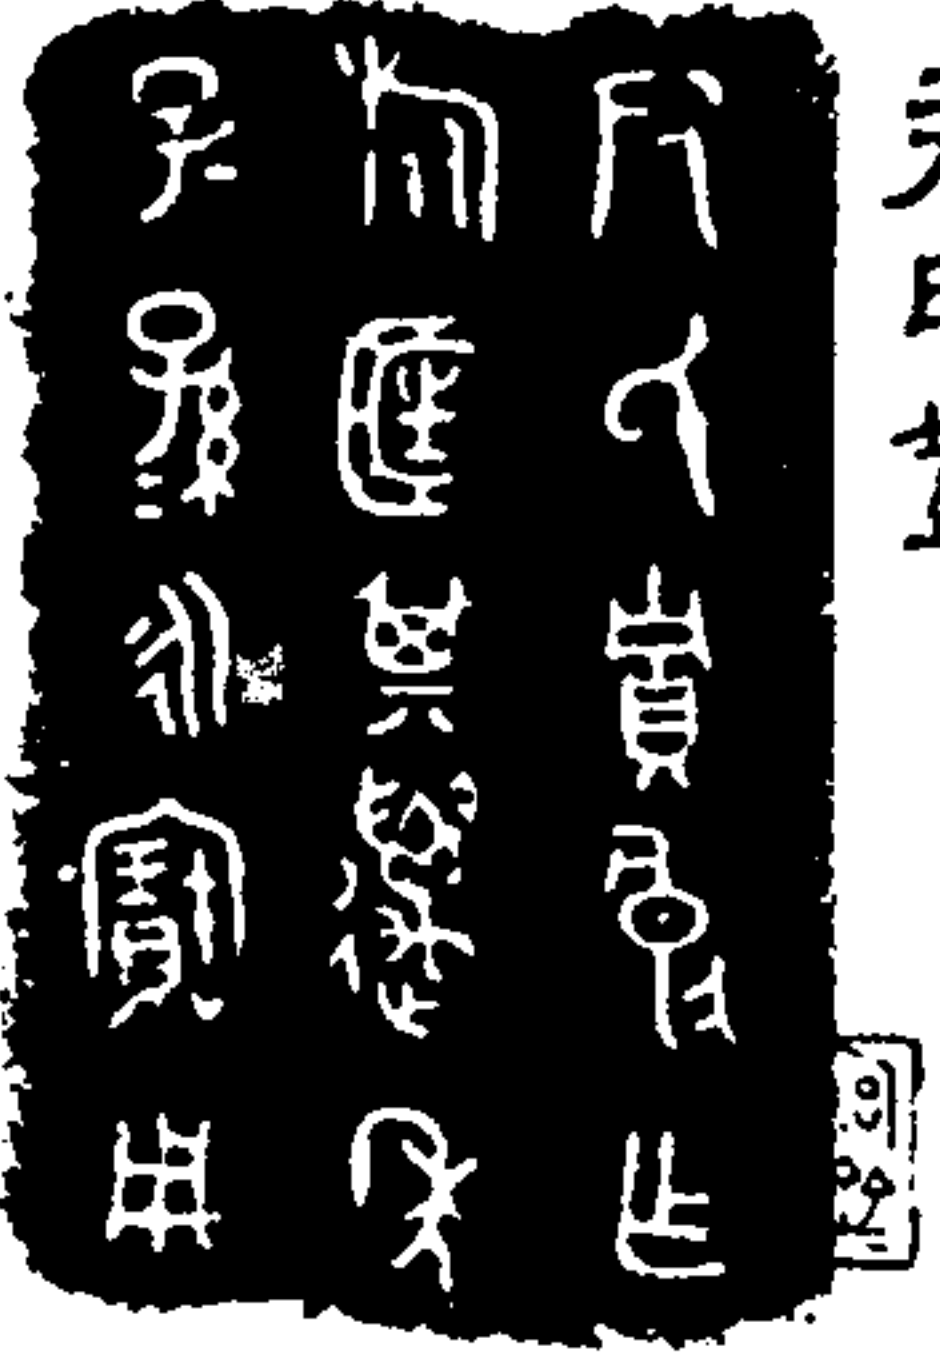 尹氏貴良乍
旅匡其邁年
子=孫=永寶用